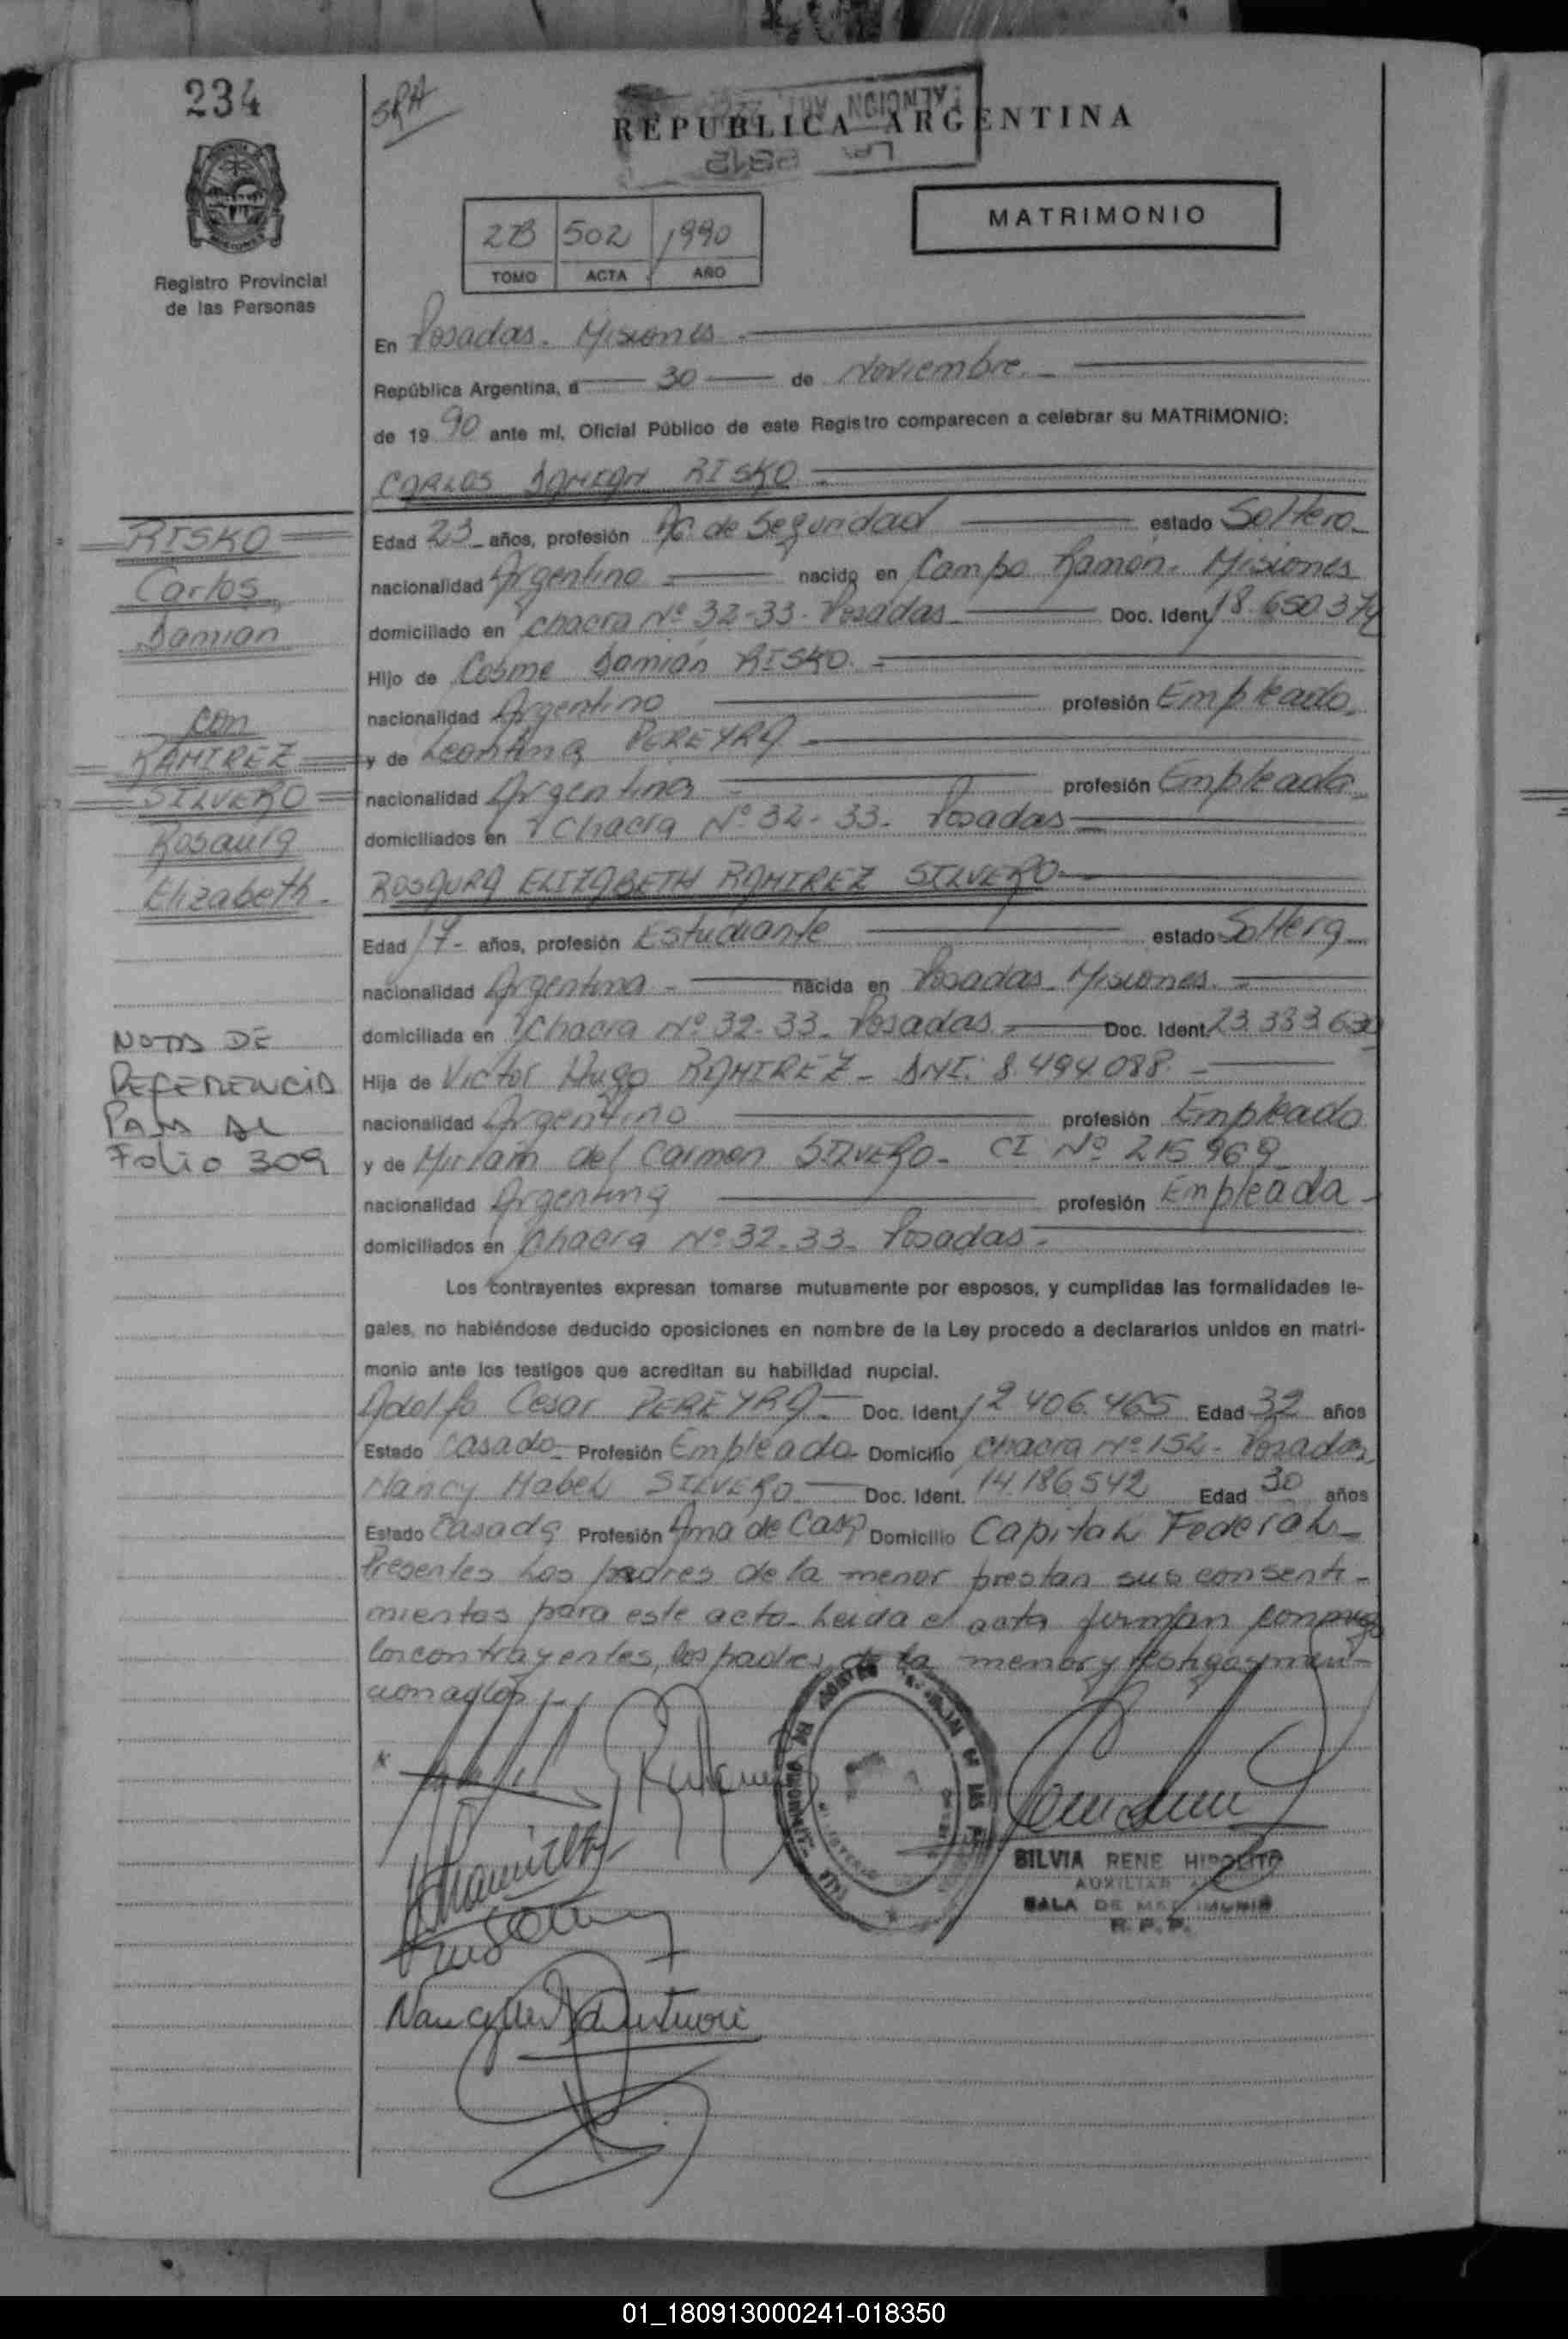 234
SRA
REPUBLICA ARGENTINA
Registro Provincial
de las Personas
2B 502 1990
TOMO ACTA AÑO
MATRIMONIO
En Posadas. Misiones
República Argentina, a 30 de Noviembre.
de 1990 ante mí, Oficial Público de este Registro comparecen a celebrar su MATRIMONIO:
CARLOS DAMIAN RISKO
Edad 23 años, profesión Ag. de Seguridad estado Soltero
nacionalidad Argentino nacido en Campo Ramón. Misiones
domiciliado en Chacra Nº 32-33. Posadas Doc. Ident. 18.650.374
Hijo de Cosme Damián RISKO.
nacionalidad Argentino profesión Empleado.
y de Leontina PEREYRA
nacionalidad Argentina profesión Empleada
domiciliados en Chacra Nº 32-33. Posadas
ROSAURA ELIZABETH RAMIREZ SILVERO
Edad 17 años, profesión Estudiante estado Soltera
nacionalidad Argentina nacida en Posadas. Misiones.
domiciliada en Chacra Nº 32-33. Posadas. Doc. Ident. 23.333.630
Hija de Victor Hugo RAMIREZ - DNI: 8.494.088.
nacionalidad Argentino profesión Empleado
y de Miriam del Carmen SILVERO - CI Nº 215969
nacionalidad Argentina profesión Empleada
domiciliados en Chacra Nº 32-33. Posadas
Los contrayentes expresan tomarse mutuamente por esposos, y cumplidas las formalidades le-
gales, no habiéndose deducido oposiciones en nombre de la Ley procedo a declararlos unidos en matri-
monio ante los testigos que acreditan su habilidad nupcial.
Adolfo Cesar PEREYRA Doc. Ident. 12.406.465 Edad 32 años
Estado Casado Profesión Empleado Domicilio Chacra Nº 152. Posadas
Nancy Mabel SILVERO Doc. Ident. 14.186.542 Edad 30 años
Estado Casada Profesión Ama de Casa Domicilio Capital Federal
Presentes los padres de la menor prestan sus consenti-
mientos para este acto. Leida el acta firman conmigo
los contrayentes, los padres de la menor y testigos men-
cionados
RISKO
Carlos
Damian
con
RAMIREZ
SILVERO
Rosaura
Elizabeth
NOTA DE
REFERENCIA
PASA AL
Folio 309
SILVIA RENE HIPOLITO
AUXILIAR
SALA DE MATRIMONIO
R. P. P.
01_180913000241-018350